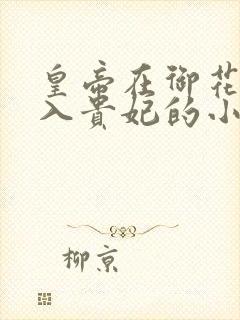 皇帝在御花
入贵妃的小
柳京